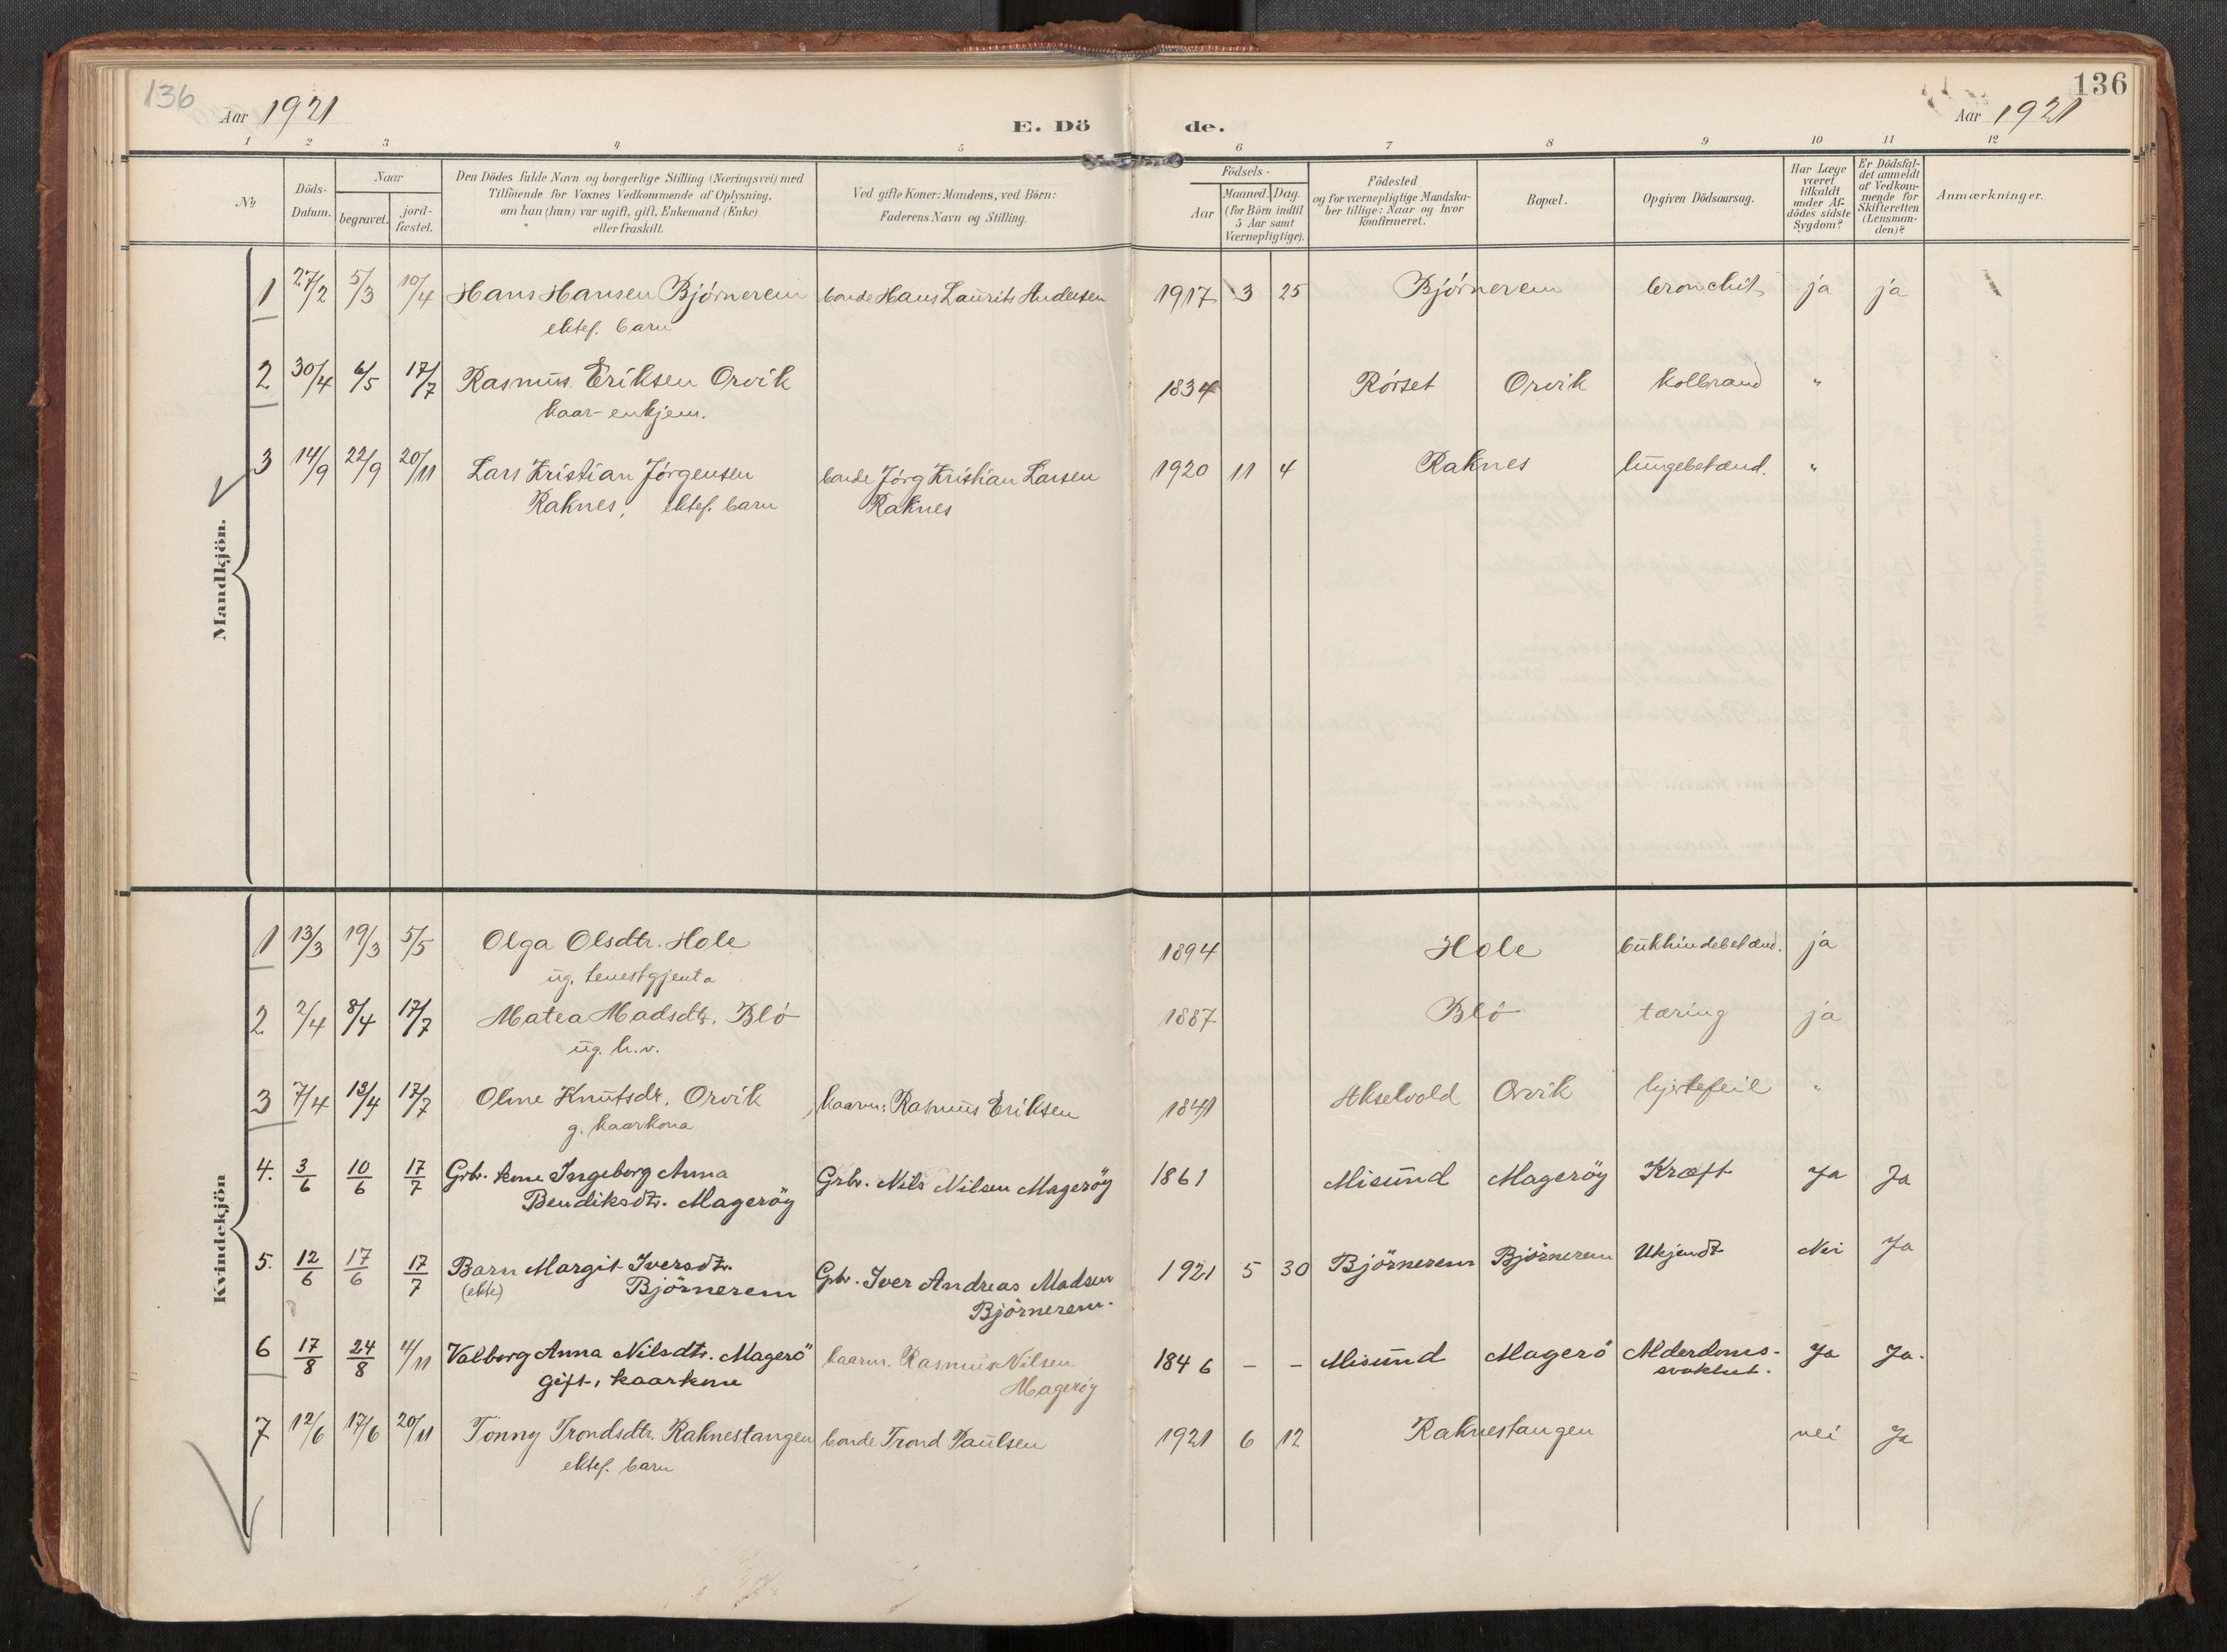 136
136
Aar 1921
E. Dö
de.
Aar 1921
1 2 3 4 5 6 7 8 9 10 11 12
No
Döds-
Datum.
Naar
begravet.
jord-
fæstet.
Den Dödes fulde Navn og borgerlige Stilling (Næringsvei) med
Tilföiende for Voxnes Vedkommende af Oplysning.
om han (hun) var ugift, gift. Enkemand (Enke)
eller fraskilt.
Ved gifte Koner: Mandens, ved Börn:
Faderens Navn og Stilling.
Födsels-
Aar
Maaned. Dag.
(for Börn indtil
5 Aar samt
Værnepligtige).
Födested
og for værnepligtige Mandska-
ber tillige: Naar og hvor
Konfirmeret.
Bopæl.
Opgiven Dödsaarsag.
Har Læge
været
tilkaldt
under Af-
dödes sidste
Sygdom?
Er Dödsfal-
det anmeldt
af Vedkom-
mende for
Skifteretten
(Lensman-
den)?
Anmærkninger.
Mandkjön.
1 27/2 5/3 10/4 Hans Hansen Bjørnerem bonde Hans Laurits Andersen 1917 3 25 Bjørnerem bronchit ja ja
ektef. barn
2 30/4 6/5 17/7 Rasmus Eriksen Orvik 1834 Rørset Orvik kolbrand "
kaar-enkjem.
3 14/9 22/9 20/11 Lars Kristian Jørgensen bonde Jørg Kristian Larsen 1920 11 4 Raknes lungebetænd. "
Raknes, ektef. barn Raknes
Kvindekjön
1 13/3 19/3 5/5 Olga Olsdtr. Hole 1894 Hole bukhindebetænd. ja
ug. tenestgjenta
2 2/4 8/4 17/7 Matea Madsdtr. Blø 1887 Blø tæring ja
ug. h.v.
3 7/4 13/4 17/7 Oline Knutsdtr. Orvik kaarm. Rasmus Eriksen 1841 Akselvold Orvik hjertefeil "
g. kaarkona
4. 3/6 10/6 17/7 Grbr. kone Ingeborg Anna Grbr. Nils Nilsen Magerøy 1861 Misund Magerøy Kræft Ja Ja
Bendiksdtr. Magerøy
5. 12/6 17/6 17/7 Barn Margit Iversdtr. Gbr. Iver Andreas Madsen 1921 5 30 Björnerem Björnerem Ukjendt Nei Ja
(ekte) Björnerem Björnerem.
6 17/8 24/8 11/11 Valborg Anna Nilsdtr. Magerö kaarm. Rasmus Nilsen 1846 - - Misund Magerö Alderdoms- Ja Ja.
gift, kaarkone Magerøy svakhet.
7 12/6 17/6 20/11 Tonny Trondsdtr. Raknestangen bonde Trond Paulsen 1921 6 12 Raknestangen nei Ja
ektef. barn